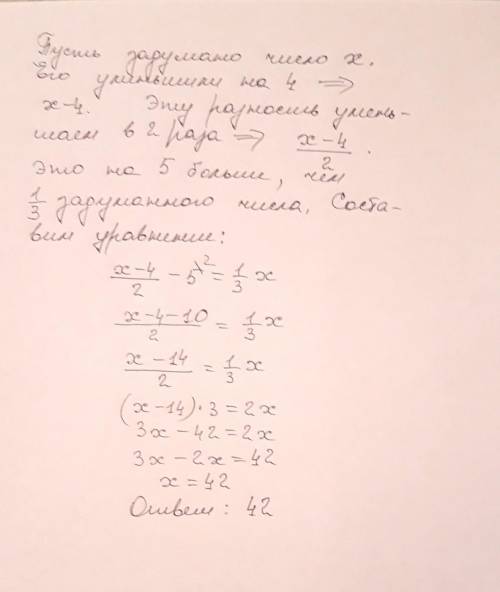 Пусть задумано число x.
Его уменьшили на 4 ⇒
x-4. Эту разность умень-
шаем в 2 раза ⇒ \frac{x-4}{2}.
Это на 5 больше, чем
\frac{1}{3} задуманного числа, Соста-
вим уравнение:
\frac{x-4}{2} - 5^{\2} = \frac{1}{3}x
\frac{x-4-10}{2} = \frac{1}{3}x
\frac{x-14}{2} = \frac{1}{3}x
(x-14)·3 = 2x
3x - 42 = 2x
3x - 2x = 42
x = 42
Ответ: 42